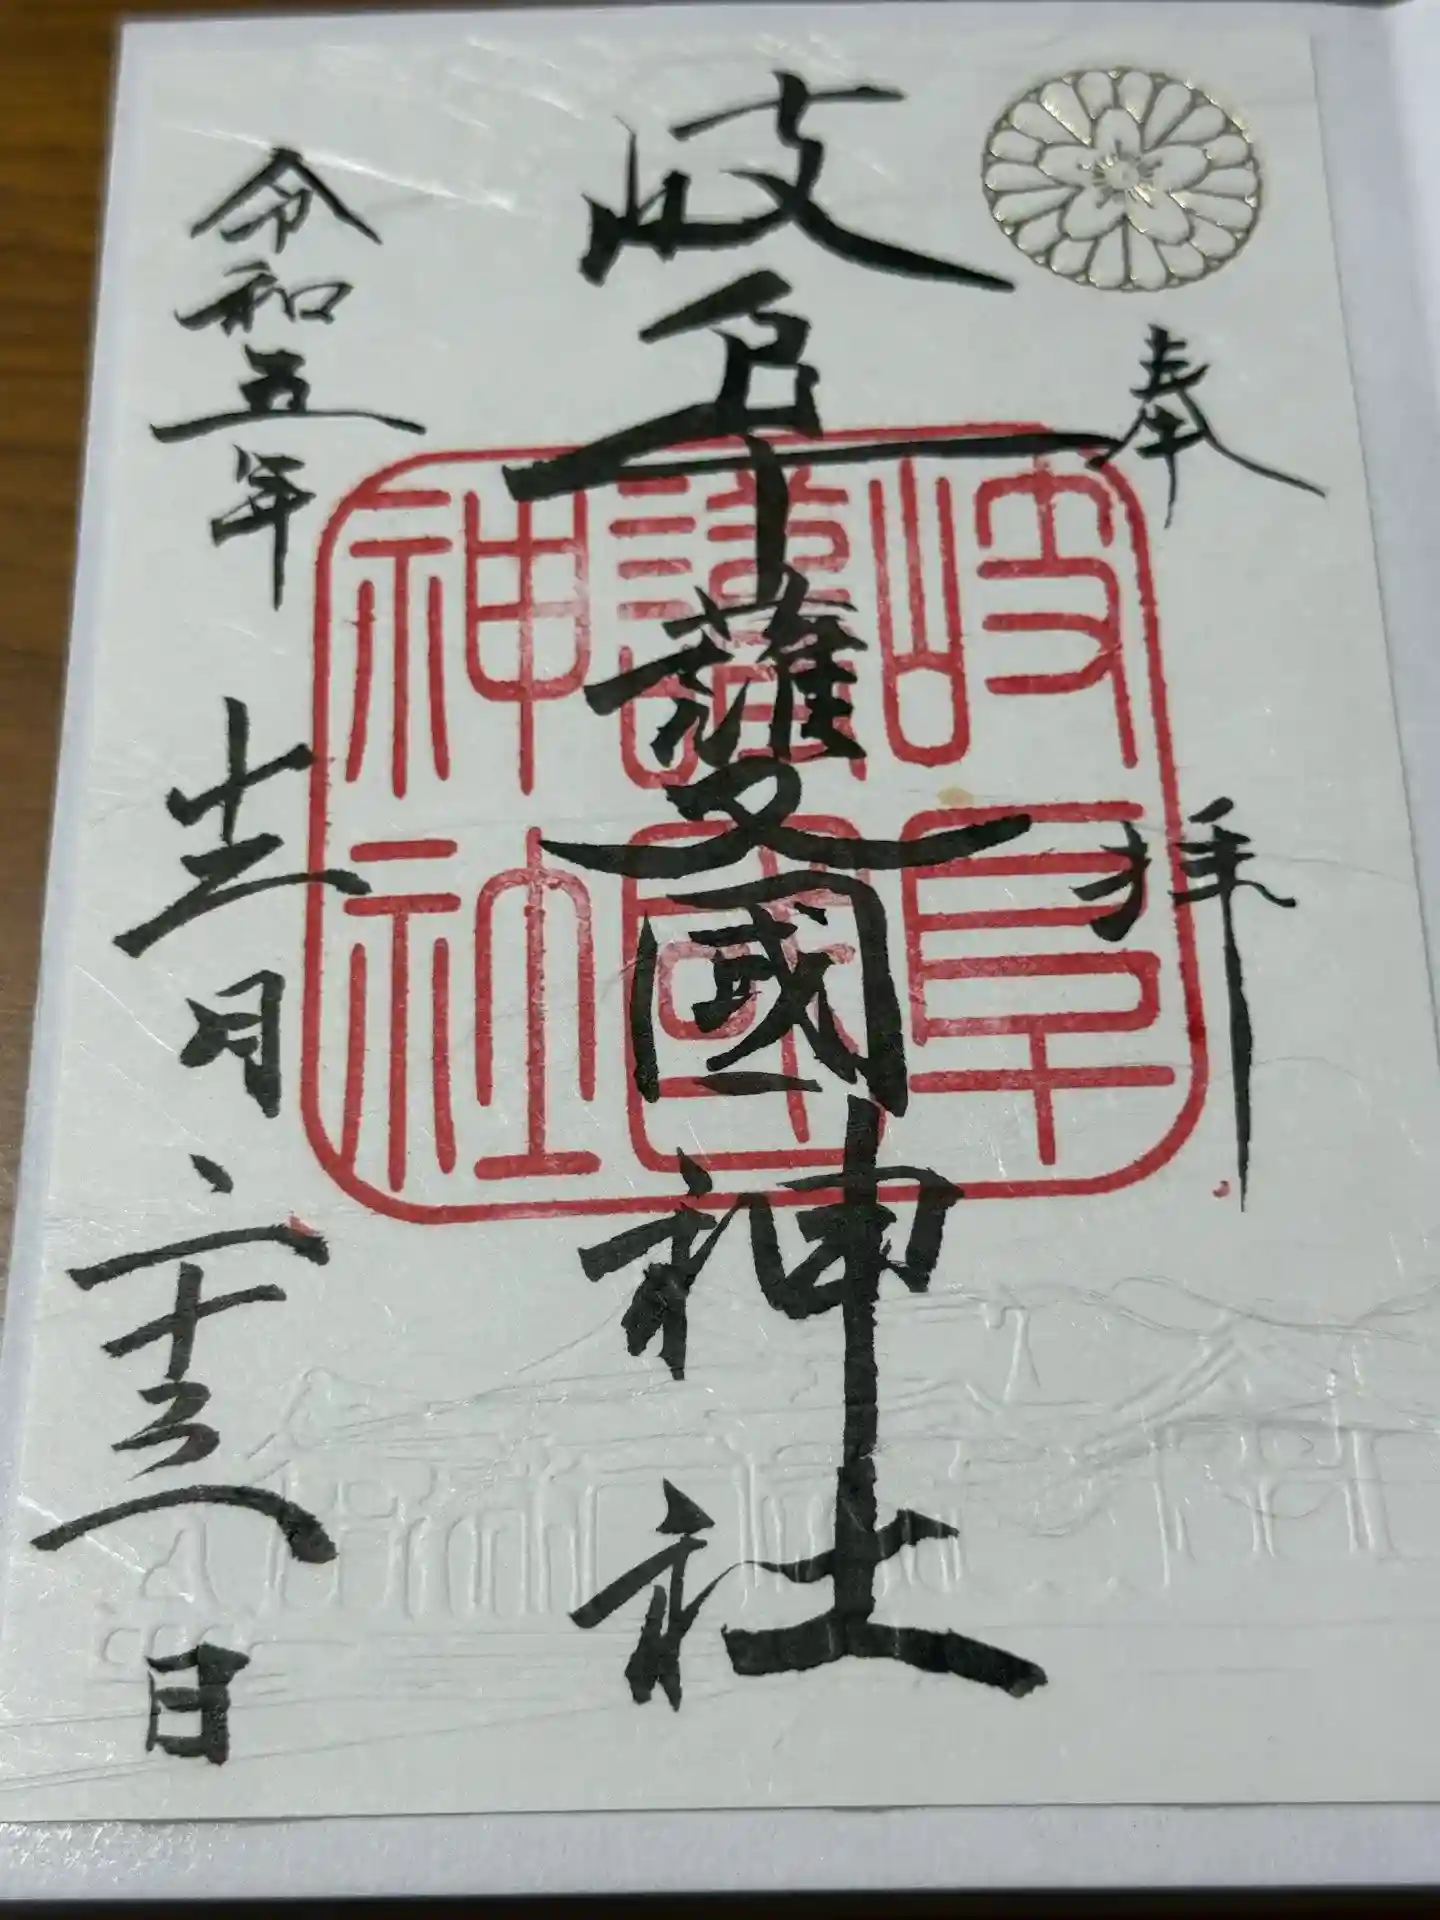 奉拝
岐阜護國神社
岐阜
護國
神社
令和五年十二月二十三日